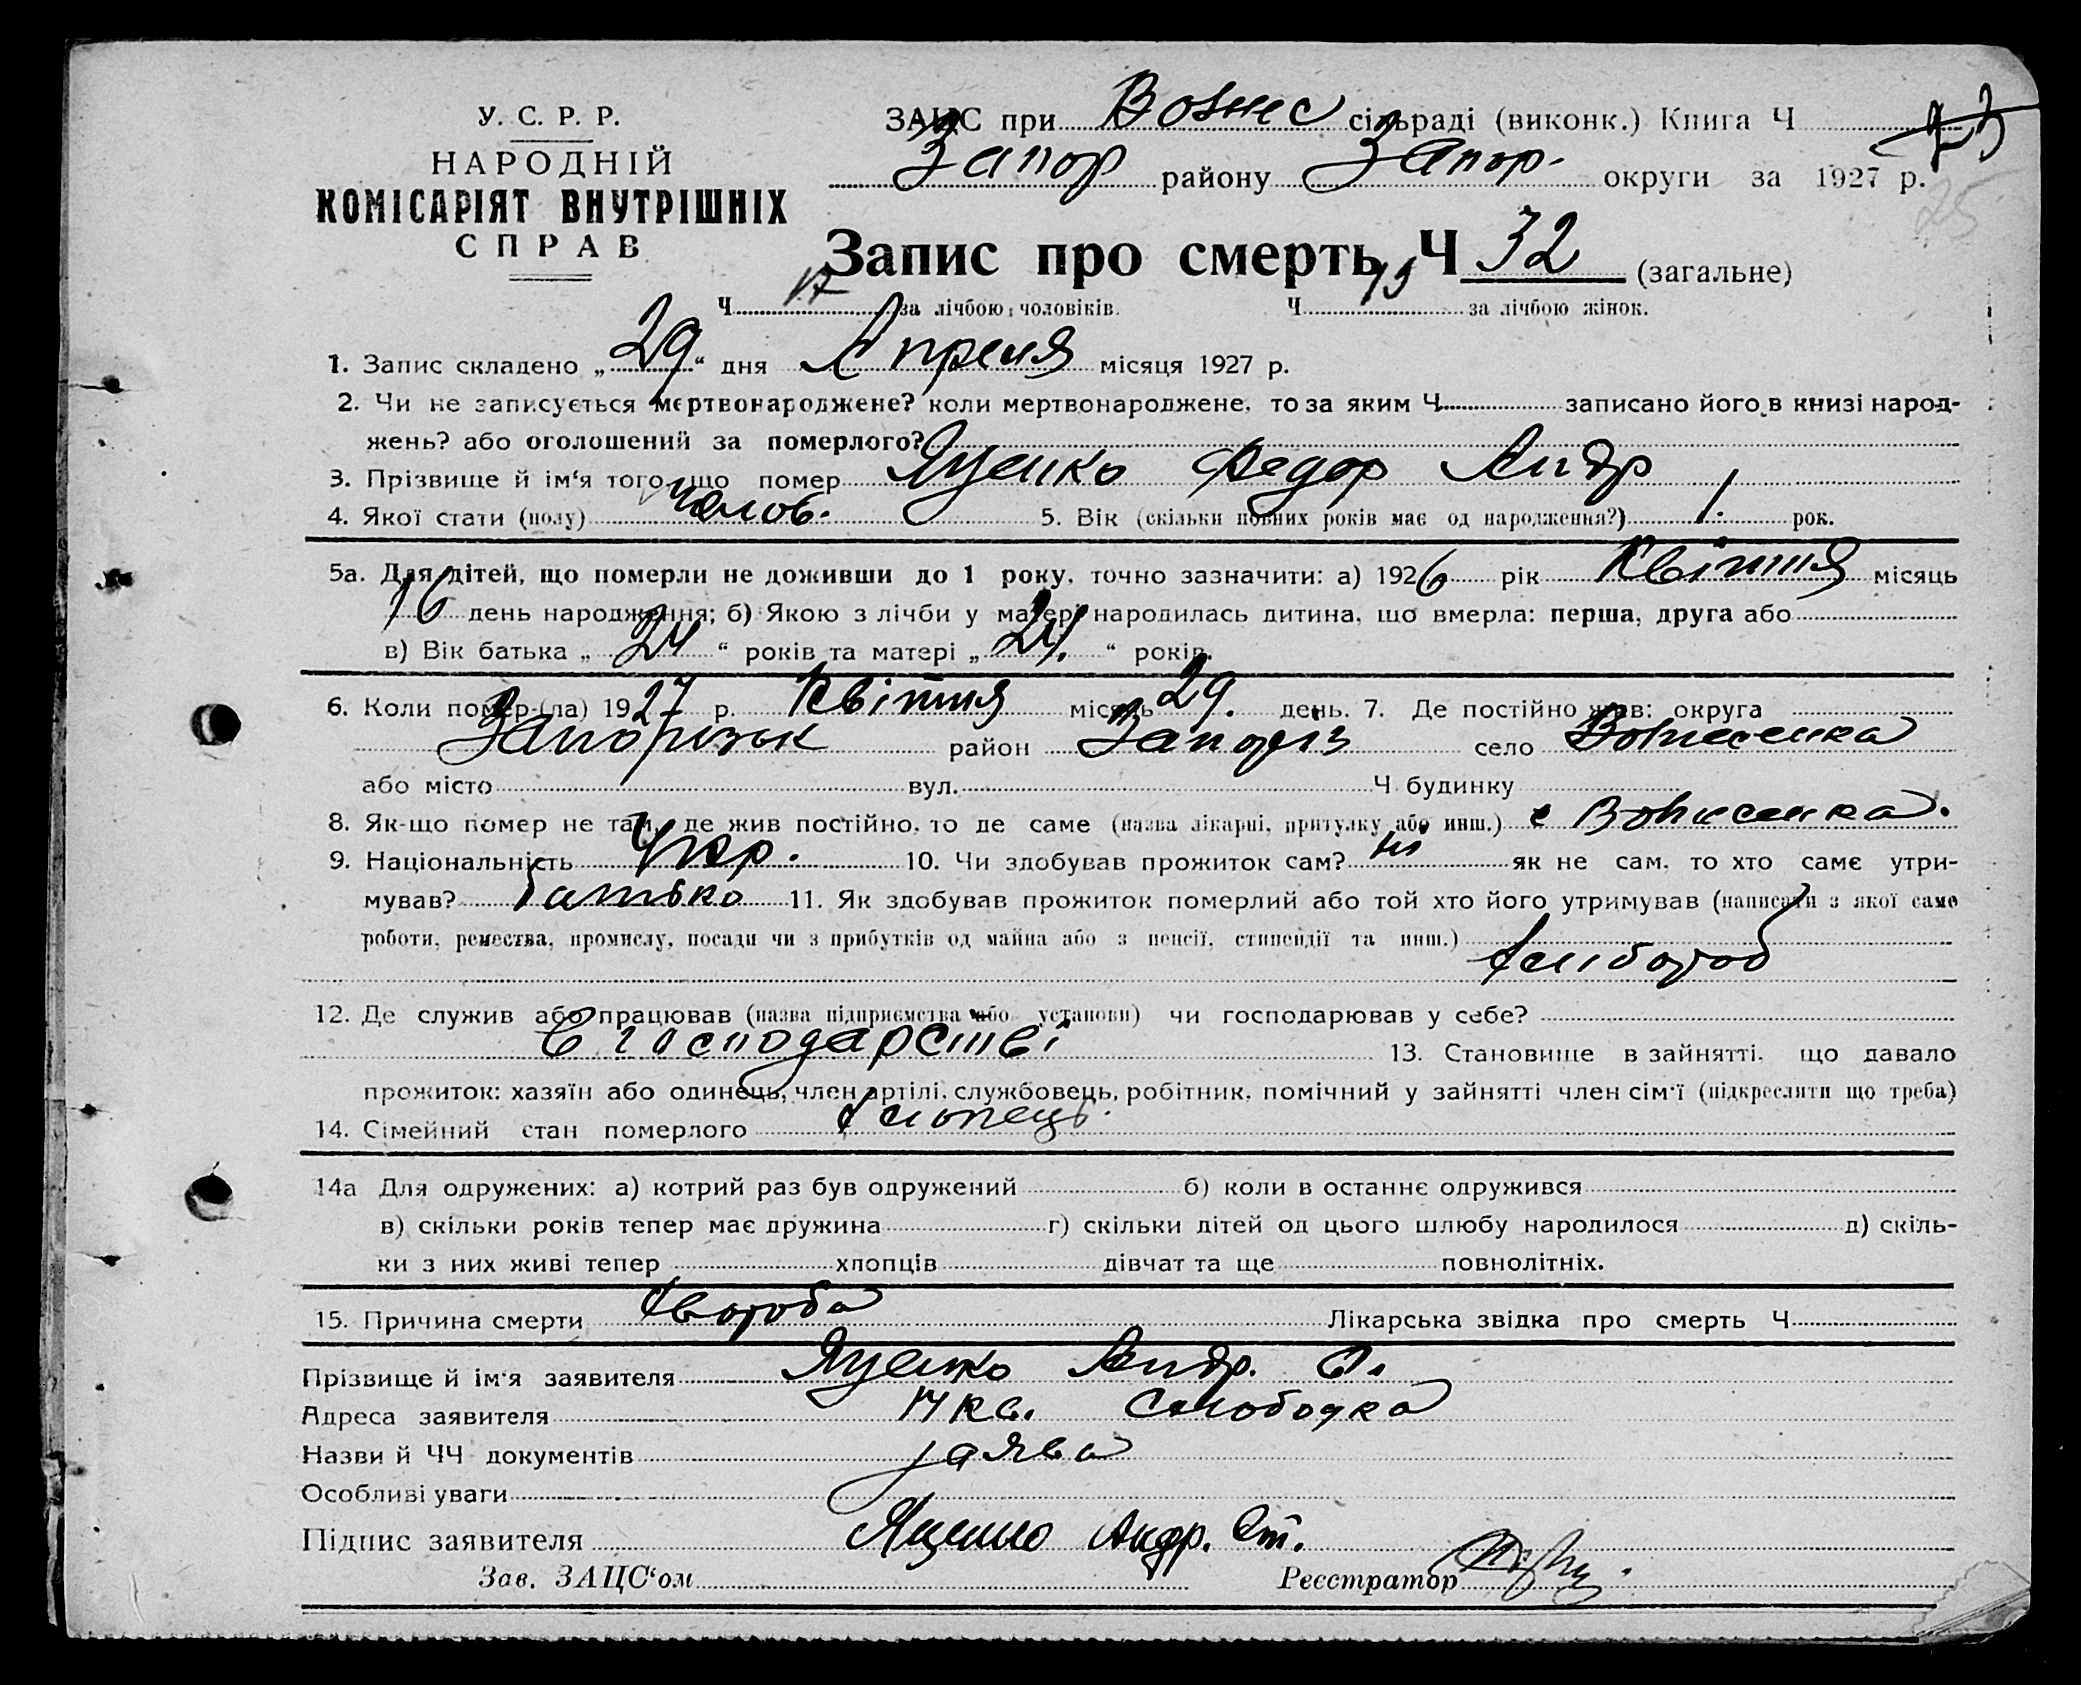 У. С. Р. Р.
НАРОДНІЙ
КОМІСАРІЯТ ВНУТРІШНІХ
СПРАВ
ЗАЦС при Вознес сільраді (виконк.) Книга Ч 23
Запор району Запор. округи за 1927 р.
25
Запис про смерть Ч 32 (загальне)
Ч 17 за лічбою чоловіків. Ч 15 за лічбою жінок.
1. Запис складено „29“ дня Апреля місяця 1927 р.
2. Чи не записується мертвонароджене? коли мертвонароджене, то за яким Ч записано його в книзі народ-
жень? або оголошений за померлого?
3. Прізвище й ім‘я того, що помер Яценко Федор Андр
4. Якої стати (полу) Чолов. 5. Вік (скільки повних років має од народження?) 1. рок.
5а. Для дітей, що померли не доживши до 1 року, точно зазначити: а) 1926 рік Квітня місяць
16 день народження; б) Якою з лічби у матері народилась дитина, що вмерла: перша, друга або
в) Вік батька „24“ років та матері „24.“ років.
6. Коли помер (ла) 1927 р. Квітня місяць 29. день. 7. Де постійно жив: округа
Запорізьк район Запоріз село Вознесенка
або місто вул. Ч будинку
8. Як-що помер не там, де жив постійно, то де саме (назва лікарні, притулку або инш.) с Вознесенка.
9. Національність Укр. 10. Чи здобував прожиток сам? ні як не сам, то хто саме утри-
мував? батько 11. Як здобував прожиток померлий або той хто його утримував (написати з якої саме
роботи, ремества, промислу, посади чи з прибутків од майна або з пенсії, стипендії та инш.)
хлібороб
12. Де служив або працював (назва підприємства або установи) чи господарював у себе?
В господарстві 13. Становище в зайнятті, що давало
прожиток: хазяїн або одинець, член артілі, службовець, робітник, помічний у зайнятті член сім‘ї (підкреслити що треба)
14. Сімейний стан померлого хлопець.
14а Для одружених: а) котрий раз був одружений б) коли в останнє одружився
в) скільки років тепер має дружина г) скільки дітей од цього шлюбу народилося д) скіль-
ки з них живі тепер хлопців дівчат та ще повнолітніх.
15. Причина смерти хвороба Лікарська звідка про смерть Ч
Прізвище й ім‘я заявителя Яценко Андр. С.
Адреса заявителя 14 кв. Слободка
Назви й ЧЧ документів заява
Особливі уваги
Підпис заявителя Яценко Андр. Ст.
Зав. ЗАЦС‘ом Реєстратор